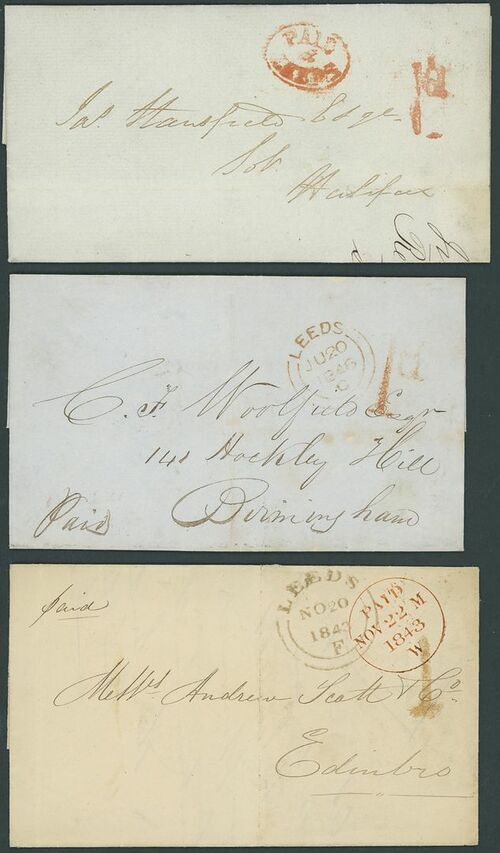 PAID
1d
Jas. Stansfield Esqre
Sol.
Halifax
LEEDS
JU20
1846
C
1d
C. F. Woolfield Esqr
141 Hockley Hill
Paid
Birmingham
LEEDS
NO20
1843
F
PAID
NOV 22 M
1843
W
paid
1
Messrs. Andrew Scott & Co.
Edinbro